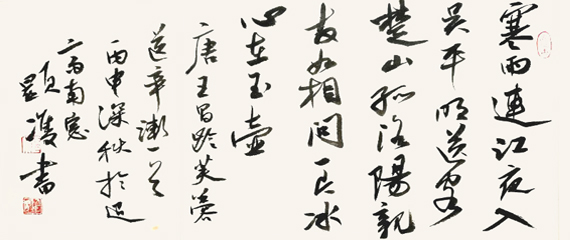 寒雨連江夜入
吳平明送客
楚山孤洛陽親
友如相問一片冰
心在玉壺
唐王昌齡芙蓉
送辛漸一首
丙申深秋於
南窗
書